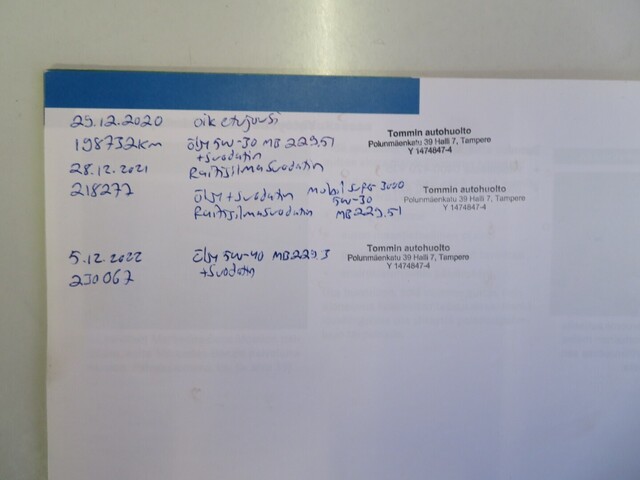 29.12.2020 oik etujousi
198732km öljy 5W-30 MB 229.51
+suodatin
Raitisilmasuodatin
Tommin autohuolto
Polunmäenkatu 39 Halli 7, Tampere
Y 1474847-4
28.12.2021
218277 öljy + suodatin Mobil Super 3000
5W-30
Raitisilmasuodatin MB229.51
Tommin autohuolto
Polunmäenkatu 39 Halli 7, Tampere
Y 1474847-4
5.12.2022 öljy 5W-40 MB229.3
230067 +suodatin
Tommin autohuolto
Polunmäenkatu 39 Halli 7, Tampere
Y 1474847-4